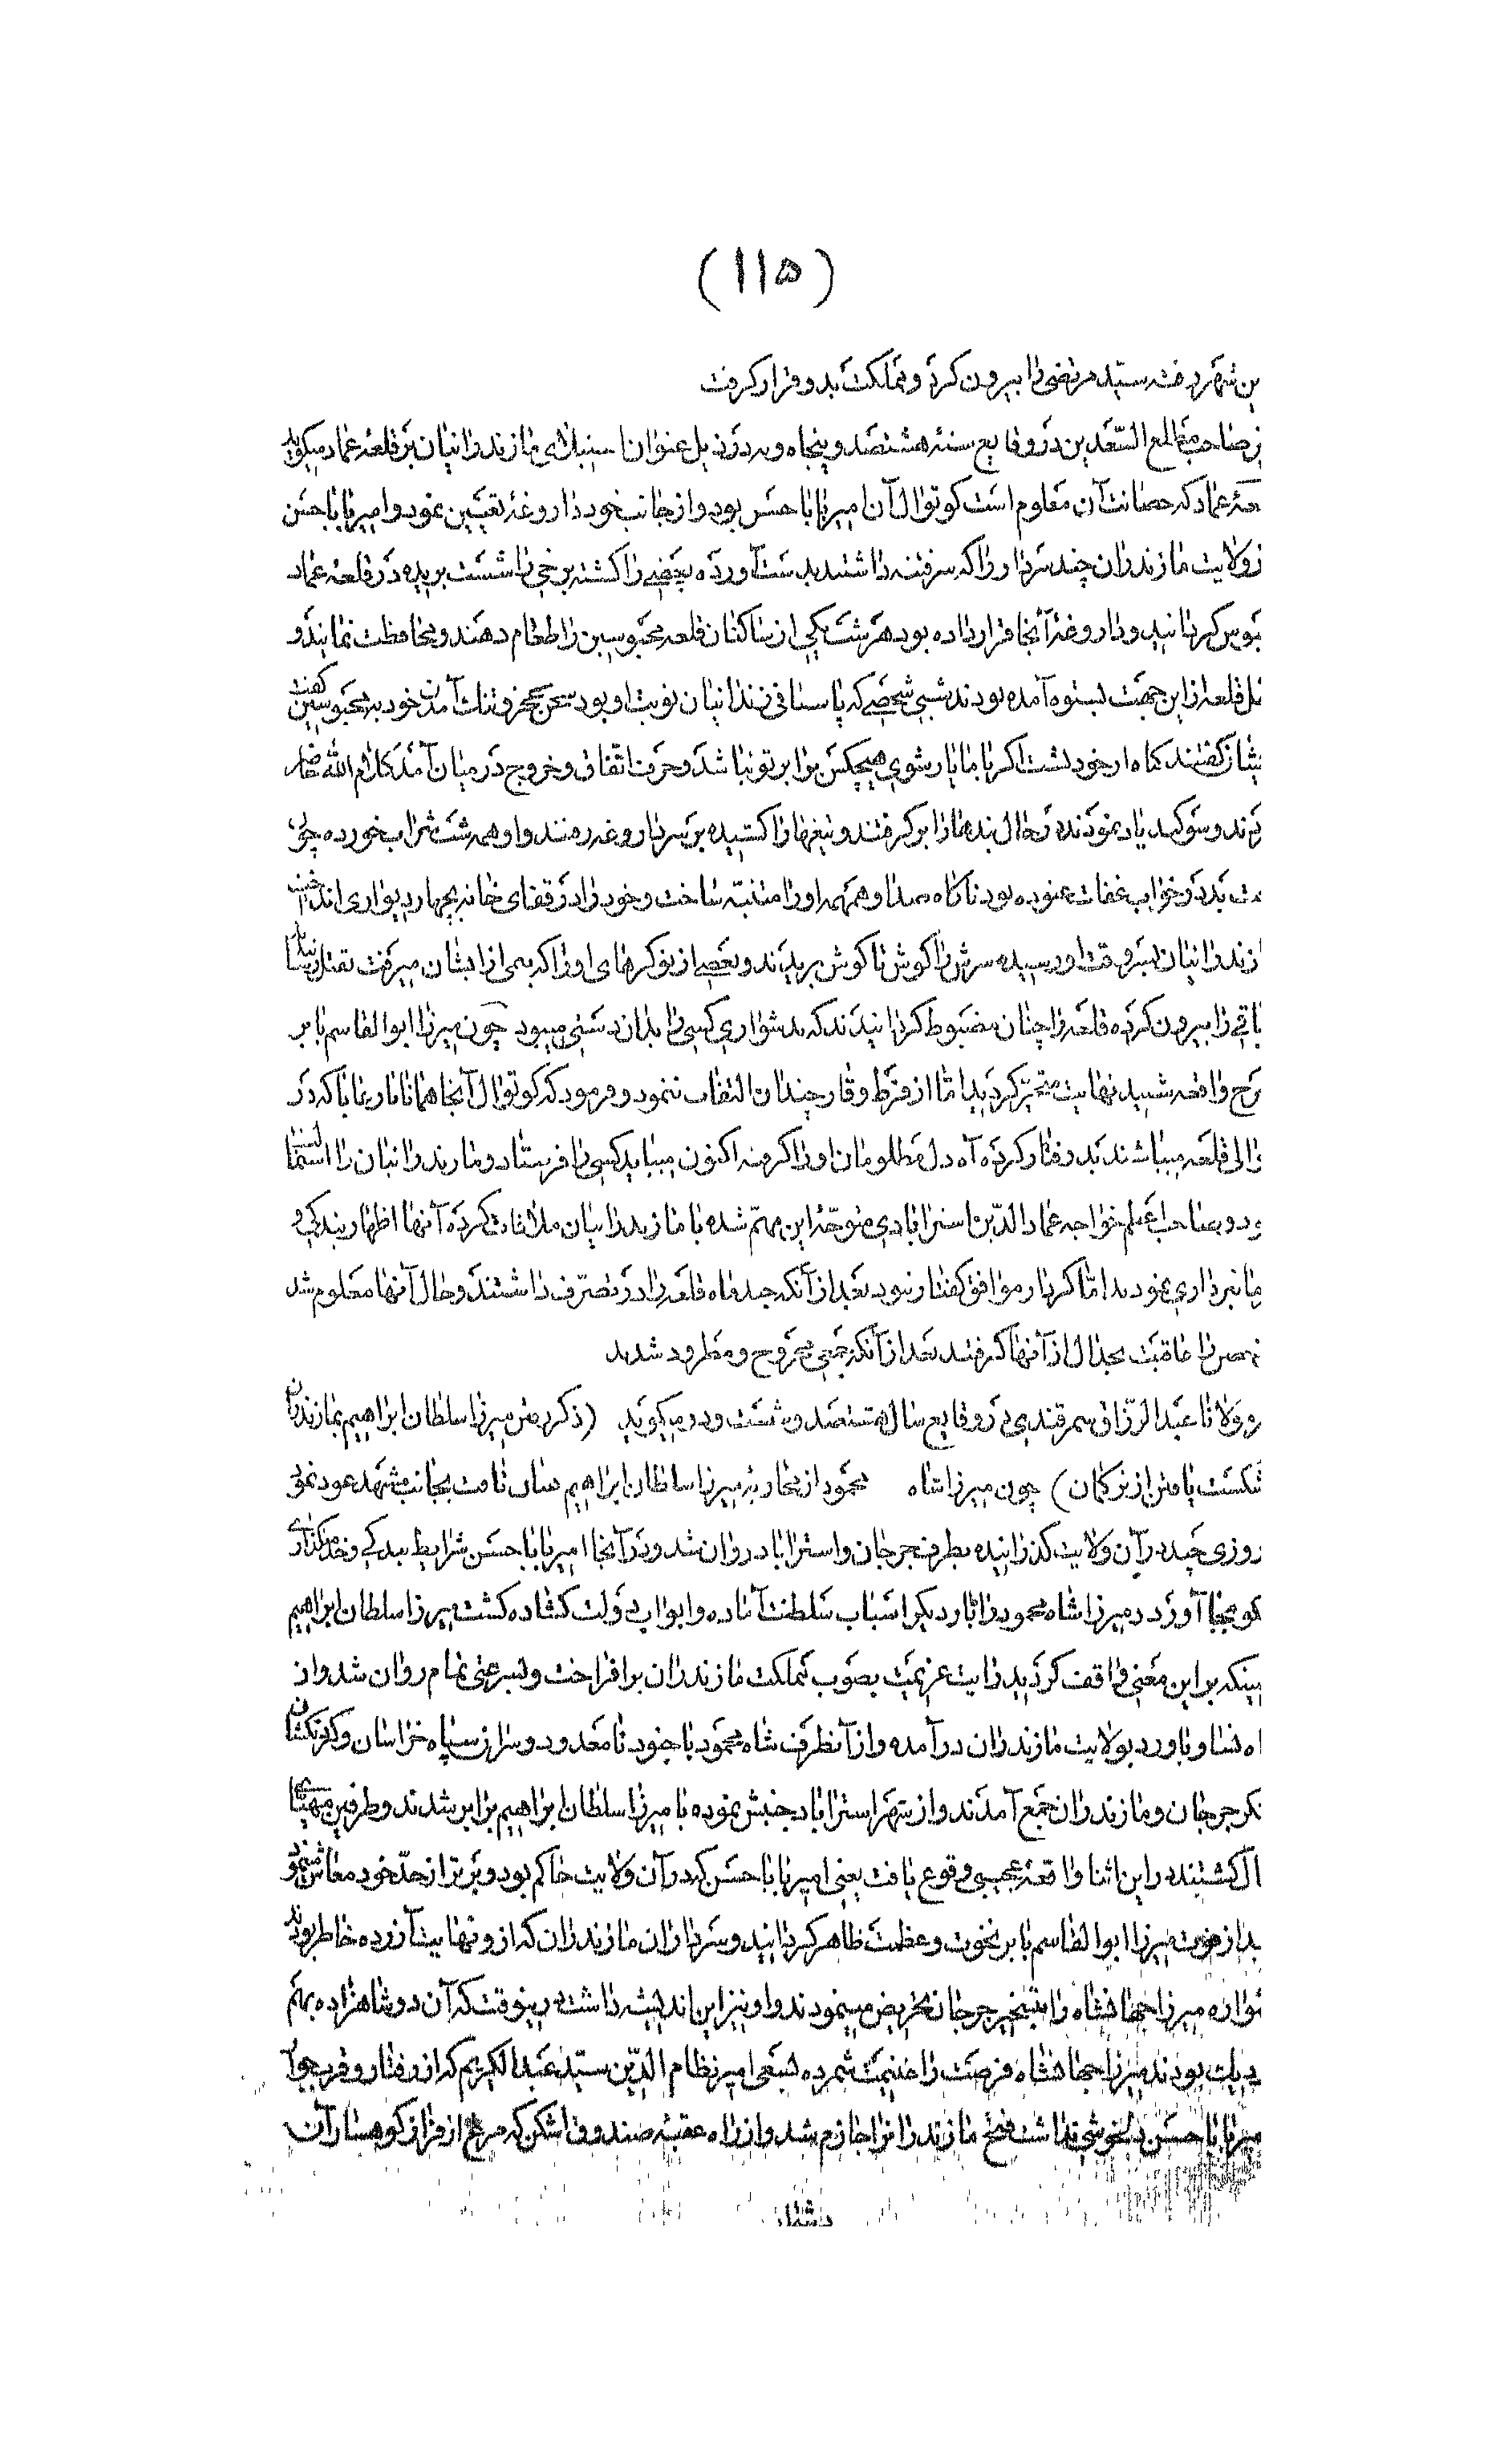 (۱۱۵)
بن شهر رفت سید مرتضی را بیرون کرد و مملکت بدو قرار گرفت
صاحب مطلع السعدین در وقایع سنه هشتصد و پنجاه و در ذیل عنوان استیلای مازندرانیان بر قلعه عماد میگوید
عماد که حصانت آن معلوم است کوتوال آن امیر بابا حسن بود و از جانب خود داروغه تعیین نمود و امیر بابا حسن
ولایت مازندران چند سردار را که سر فتنه داشتند بدست آورده بعضی را کشته برخی را شست بریده در قلعه عماد
گردانید و داروغه آنجا قرار داده بود هر شب یکی از ساکنان قلعه محبوسین را طعام دهند و محافظت نمایند و
قلعه از این جهت بستوه آمده بودند شبی شخصی که پاسبانی زندانیان نوبت او بود سخن بتنک آمدن خود به محبوسین گفت
ایشان گفتند گناه از خود تست اگر با ما یار شوی هیچکس برابر تو نباشد و حرف اتفاق و خروج در میان آمد کلام الله حاضر
کردند و سوگند یاد نمودند در حال بندها را برگرفتند و تیغها را کشیده بر سر داروغه رفتند و او همه شب شراب خورده چون
بخواب غفلت غنوده بود ناگاه صدا و همهمه او را متنبه ساخت و خود را در قفای خانه بچهار دیواری انداخت
مازندرانیان بسروقت او رسیده سرش را گوش تا گوش بریدند و بعضی از نوکرهای او را که بیمی از ایشان میرفت بقتل رسانیدند
باقی را بیرون کرده قلعه را چنان مضبوط گردانیدند که بدشواری کسی را بدان دستی میبود چون میرزا ابوالقاسم بابر
شرح واقعه شنید نهایت متحیر گردید اما از فرط وقار چندان التفات ننمود و فرمود که کوتوال آنجا همانا با رعایا که در
حوالی قلعه میباشند بد رفتار کرده آه دل مظلومان او را گرفته اکنون میباید کسی را فرستاد و مازندرانیان را استمالت
نمود و صاحب اعظم خواجه عماد الدین استرابادی متوجه این مهم شده با مازندرانیان ملاقات کرده آنها اظهار بندگی و
فرمانبرداری نمودند اما کردار موافق گفتار نبود بعد از آنکه چند ماه قلعه را در تصرف داشتند و حال آنها معلوم شد
حصن را عاقبت بجدال از آنها گرفتند بعد از آنکه جمعی مجروح و مطرود شدند
و مولانا عبد الرزاق سمرقندی در وقایع سال هشتصد و شصت و دو میگوید (ذکر رفتن میرزا سلطان ابراهیم بمازندران
شکست یافتن از ترکمان) چون میرزا شاه محمود از محاربه میرزا سلطان ابراهیم بجانب مشهد عود نمود
روزی چند در آن ولایت گذرانیده بطرف جرجان و استراباد روان شد و در آنجا امیر بابا حسن شرایط بندگی و خدمتکذاری
نیکو بجا آورد و میرزا شاه محمود را بار دیگر اسباب سلطنت آماده و ابواب دولت گشاده گشت میرزا سلطان ابراهیم
همینکه بر این معنی واقف گردید رایت عزیمت بصوب مملکت مازندران برافراخت و بسرعتی تمام روان شد و از
راه نسا و باورد بولایت مازندران درآمده و از آنطرف شاه محمود با جنود نامعدود و سران سپاه خراسان و گردنکشان
لشکر جرجان و مازندران جمع آمدند و از شهر استراباد جنبش نموده با میرزا سلطان ابراهیم برابر شدند و طرفین مهیای
گشتند در این اثنا واقعه عجیبی وقوع یافت یعنی امیر بابا حسن که در آن ولایت حاکم بود و برتر از حد خود معاش مینمود و
بعد از فوت میرزا ابوالقاسم بابر نخوت و عظمت ظاهر گردانید و سرداران مازندران که از او نهایت آزرده خاطر بودند
همواره میرزا جهانشاه را بتسخیر جرجان تحریض مینمودند و او نیز این اندیشه داشت در ینوقت که آن دو شاهزاده بهم
نزدیک بودند میرزا جهانشاه فرصت را غنیمت شمرده بسعی امیر نظام الدین سید عبد الکریم که از رفتار و فریب
میر بابا حسن دلخوشی نداشت فتح مازندران را جازم شد و از راه عقبه صندوق شکن که مرغ از فراز کوهسار آن